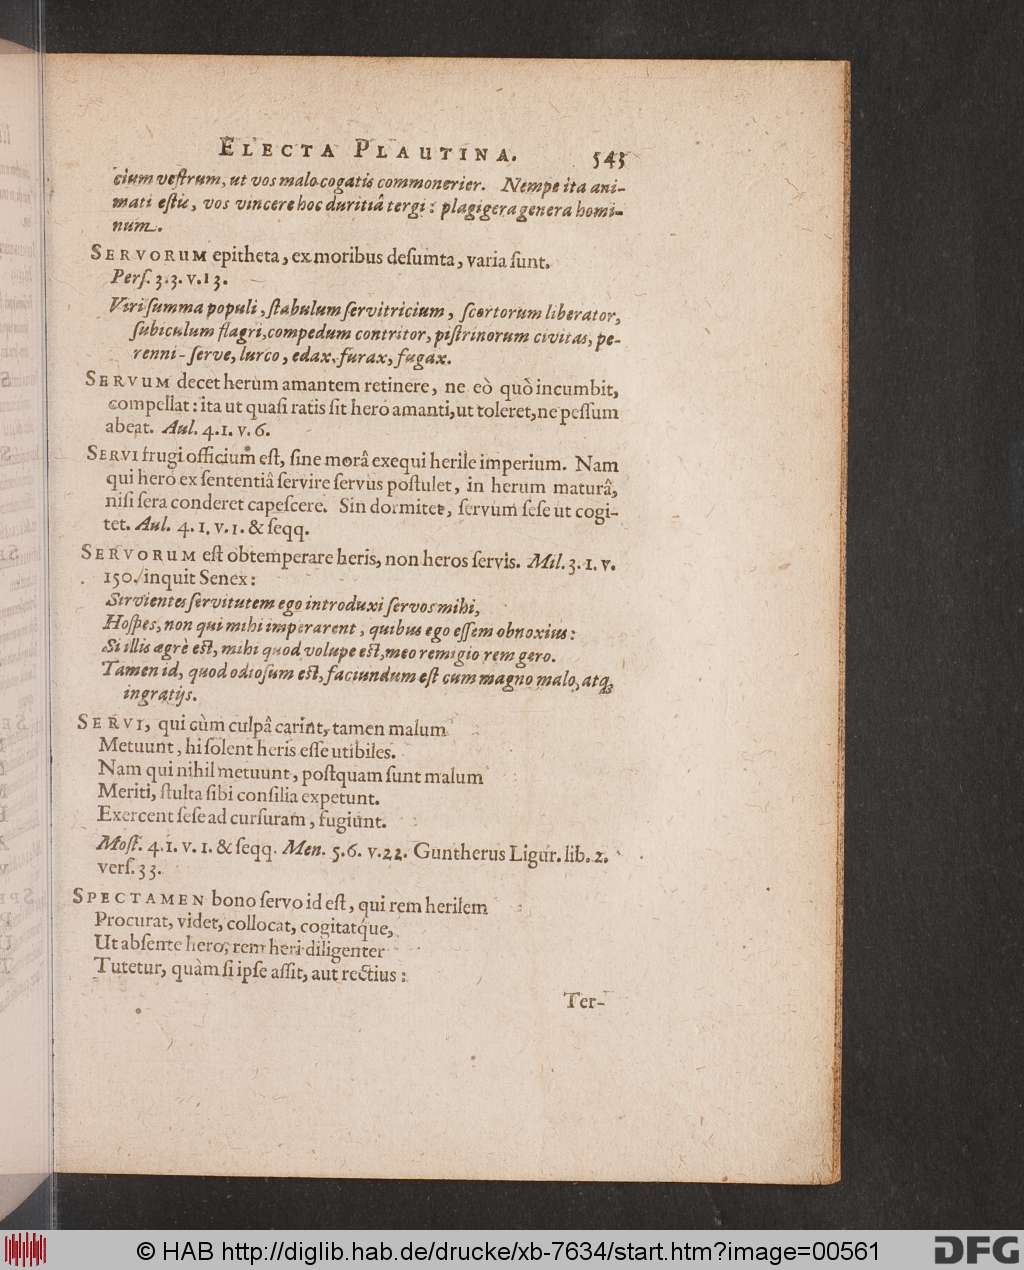 ELECTA PLAUTINA. 543
cium veſtrum, ut vos malo cogatis commonerier. Nempe ita ani-
mati eſtis, vos vincere hoc duritiâ tergi: plagigera genera homi-
num.
SERVORUM epitheta, ex moribus deſumta, varia ſunt.
Perſ. 3.3. v.13.
Viri ſumma populi, ſtabulum ſervitricium, ſcortorum liberator,
ſubiculum flagri, compedum contritor, piſtrinorum civitas, pe-
renni-ſerve, lurco, edax, furax, fugax.
SERVUM decet herum amantem retinere, ne eò quò incumbit,
compellat: ita ut quaſi ratis ſit hero amanti, ut toleret, ne peſſum
abeat. Aul. 4.1. v. 6.
SERVI frugi officium eſt, ſine morâ exequi herile imperium. Nam
qui hero ex ſententiâ ſervire ſervus poſtulet, in herum maturâ,
niſi ſera conderet capeſcere. Sin dormitet, ſervum ſeſe ut cogi-
tet. Aul. 4. 1. v. 1. & ſeqq.
SERVORUM eſt obtemperare heris, non heros ſervis. Mil. 3. 1. v.
150. inquit Senex:
Servientes ſervitutem ego introduxi ſervos mihi,
Hoſpes, non qui mihi imperarent, quibus ego eſſem obnoxius:
Si illis ægrè eſt, mihi quod volupe eſt, meo remigio rem gero.
Tamen id, quod odioſum eſt, faciundum eſt cum magno malo, atq;
ingratijs.
SERVI, qui cùm culpâ carint, tamen malum
Metuunt, hi ſolent heris eſſe utibiles.
Nam qui nihil metuunt, poſtquam ſunt malum
Meriti, ſtulta ſibi conſilia expetunt.
Exercent ſeſe ad curſuram, fugiunt.
Moſt. 4.1. v. 1. & ſeqq. Men. 5.6. v.22. Guntherus Ligur. lib. 2.
verſ. 33.
SPECTAMEN bono ſervo id eſt, qui rem herilem
Procurat, videt, collocat, cogitatque,
Ut abſente hero, rem heri diligenter
Tutetur, quàm ſi ipſe aſſit, aut rectius:
Ter-
© HAB http://diglib.hab.de/drucke/xb-7634/start.htm?image=00561
DFG